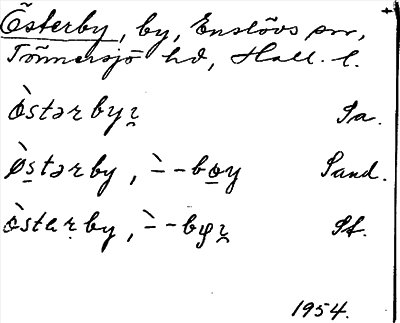 Österby, by, Enslövs sn,
Tönnersjö hd, Hall. l.
ò̤stərbyı̡ Sa.
ø̀s̱tərby, ̀--bo̱y Sand.
òstaṛby, ̀--bφı̡ St.
1954.